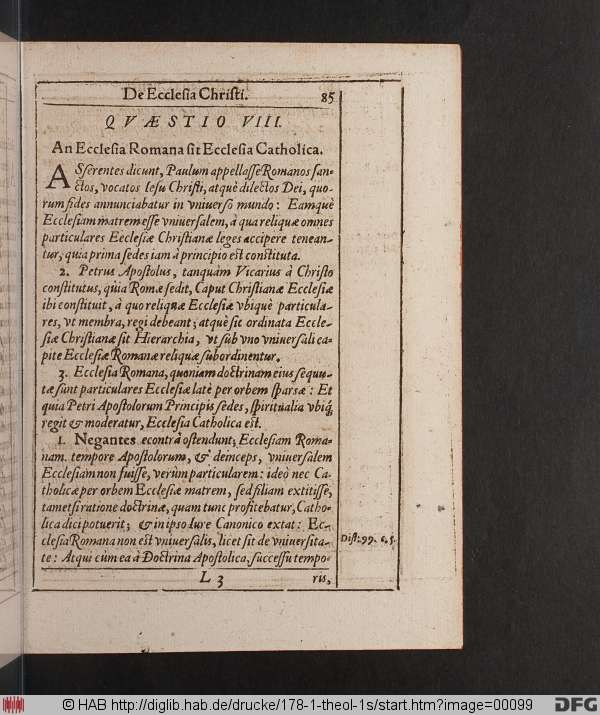 De Ecclesia Christi. 85
QVÆSTIO VIII.
An Ecclesia Romana sit Ecclesia Catholica.
ASserentes dicunt, Paulum appellasse Romanos san-
ctos, vocatos Iesu Christi, atquè dilectos Dei, quo-
rum fides annunciabatur in vniverso mundo: Eamquè
Ecclesiam matrem esse vniversalem, à qua reliquæ omnes
particulares Ecclesiæ Christianæ leges accipere tenean-
tur, quia prima sedes iam à principio est constituta.
2. Petrus Apostolus, tanquàm Vicarius à Christo
constitutus, quia Romæ sedit, Caput Christianæ Ecclesiæ
ibi constituit, à quo reliquæ Ecclesiæ vbiquè particula-
res, vt membra, regi debeant; atquè sit ordinata Eccle-
siæ Christianæ sit Hierarchia, vt sub vno vniversali ca-
pite Ecclesiæ Romanæ reliquæ subordinentur.
3. Ecclesia Romana, quoniam doctrinam eius sequu-
tæ sunt particulares Ecclesiæ latè per orbem sparsæ: Et
quia Petri Apostolorum Principis sedes, spiritualia vbiq́;
regit & moderatur, Ecclesia Catholica est.
1. Negantes econtrà ostendunt; Ecclesiam Roma-
nam tempore Apostolorum, & deinceps, vniversalem
Ecclesiam non fuisse, verùm particularem: ideò nec Ca-
tholicæ per orbem Ecclesiæ matrem, sed filiam extitisse,
tametsi ratione doctrinæ, quam tunc profitebatur, Catho-
lica dici potuerit; & in ipso Iure Canonico extat: Ec-
clesia Romana non est vniversalis, licet sit de vniversita-
te: Atqui cùm ea à Doctrina Apostolica, successu tempo-
Dist. 99. c. 5.
L 3 ris,
© HAB http://diglib.hab.de/drucke/178-1-theol-1s/start.htm?image=00099
DFG